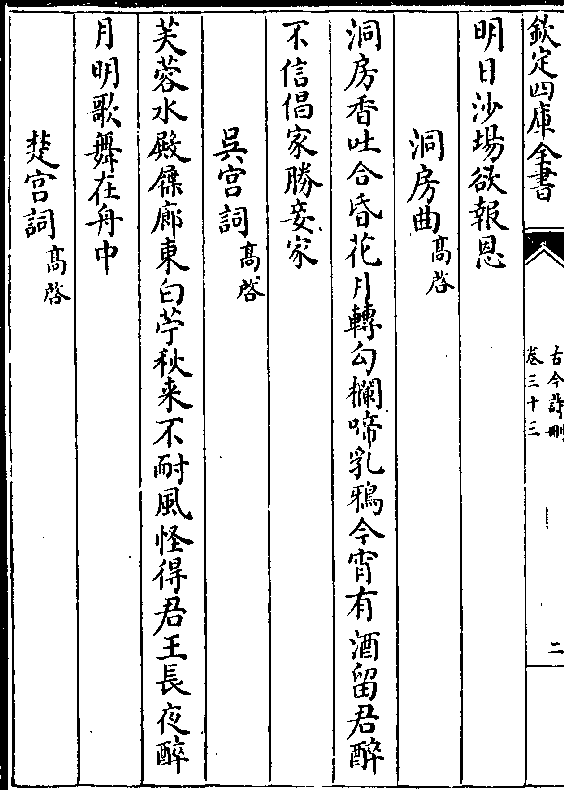 欽定四庫全書
古今詩刪
卷三十三
二
明日沙場欲報恩
洞房曲髙啓
洞房香吐合昏花月轉勾欄啼乳鴉今宵有酒留君醉
不信倡家勝妾家
吳宫詞髙啓
芙蓉水殿屧廊東白苧秋来不耐風怪得君王長夜醉
月明歌舞在舟中
楚宫詞髙啓